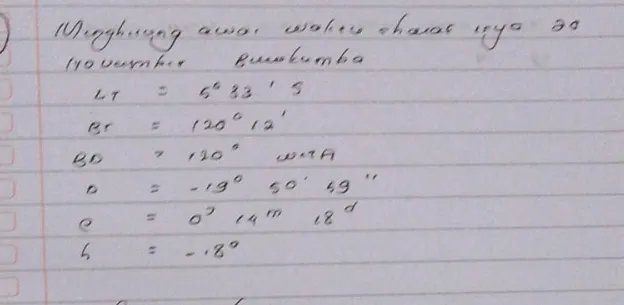 Menghitung awal waktu sholat isya 20
november Bulukumba
LT = 5° 33' S
BT = 120° 12'
BD = 120° WITA
D = -19° 50' 49"
e = 0j 14m 18d
h = -18°